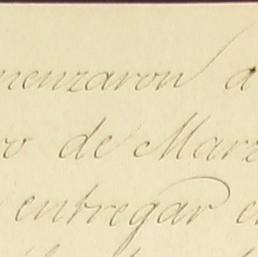 menzaron a
ro de Marz
entregar e